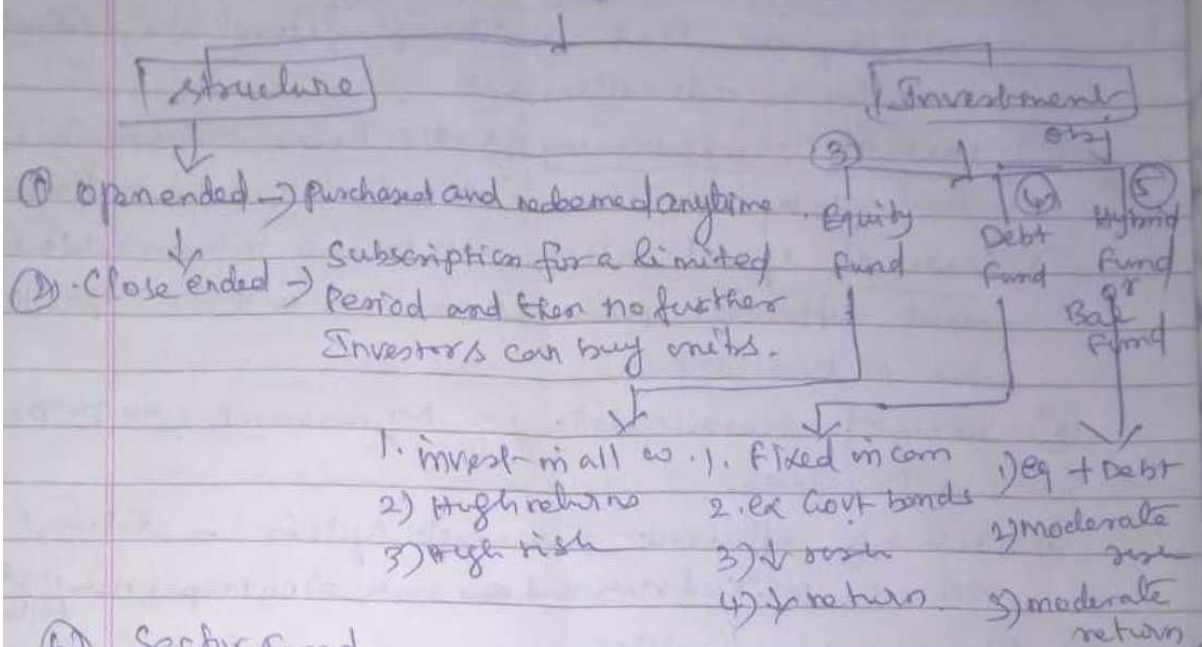 structure
Investment
obj
① open ended → purchased and redeemed anytime
② Close ended → Subscription for a limited
Period and then no further
Investors can buy units.
③
Equity
fund
④
Debt
fund
⑤
Hybrid
fund
or
Bal
fund
1. invest in all co.
2) High returns
3) High risk
1. fixed incom
2. ex Govt bonds
3) ↓ risk
4) ↓ return.
1) eq + Debt
2) moderate
risk
3) moderate
return
Sector fund